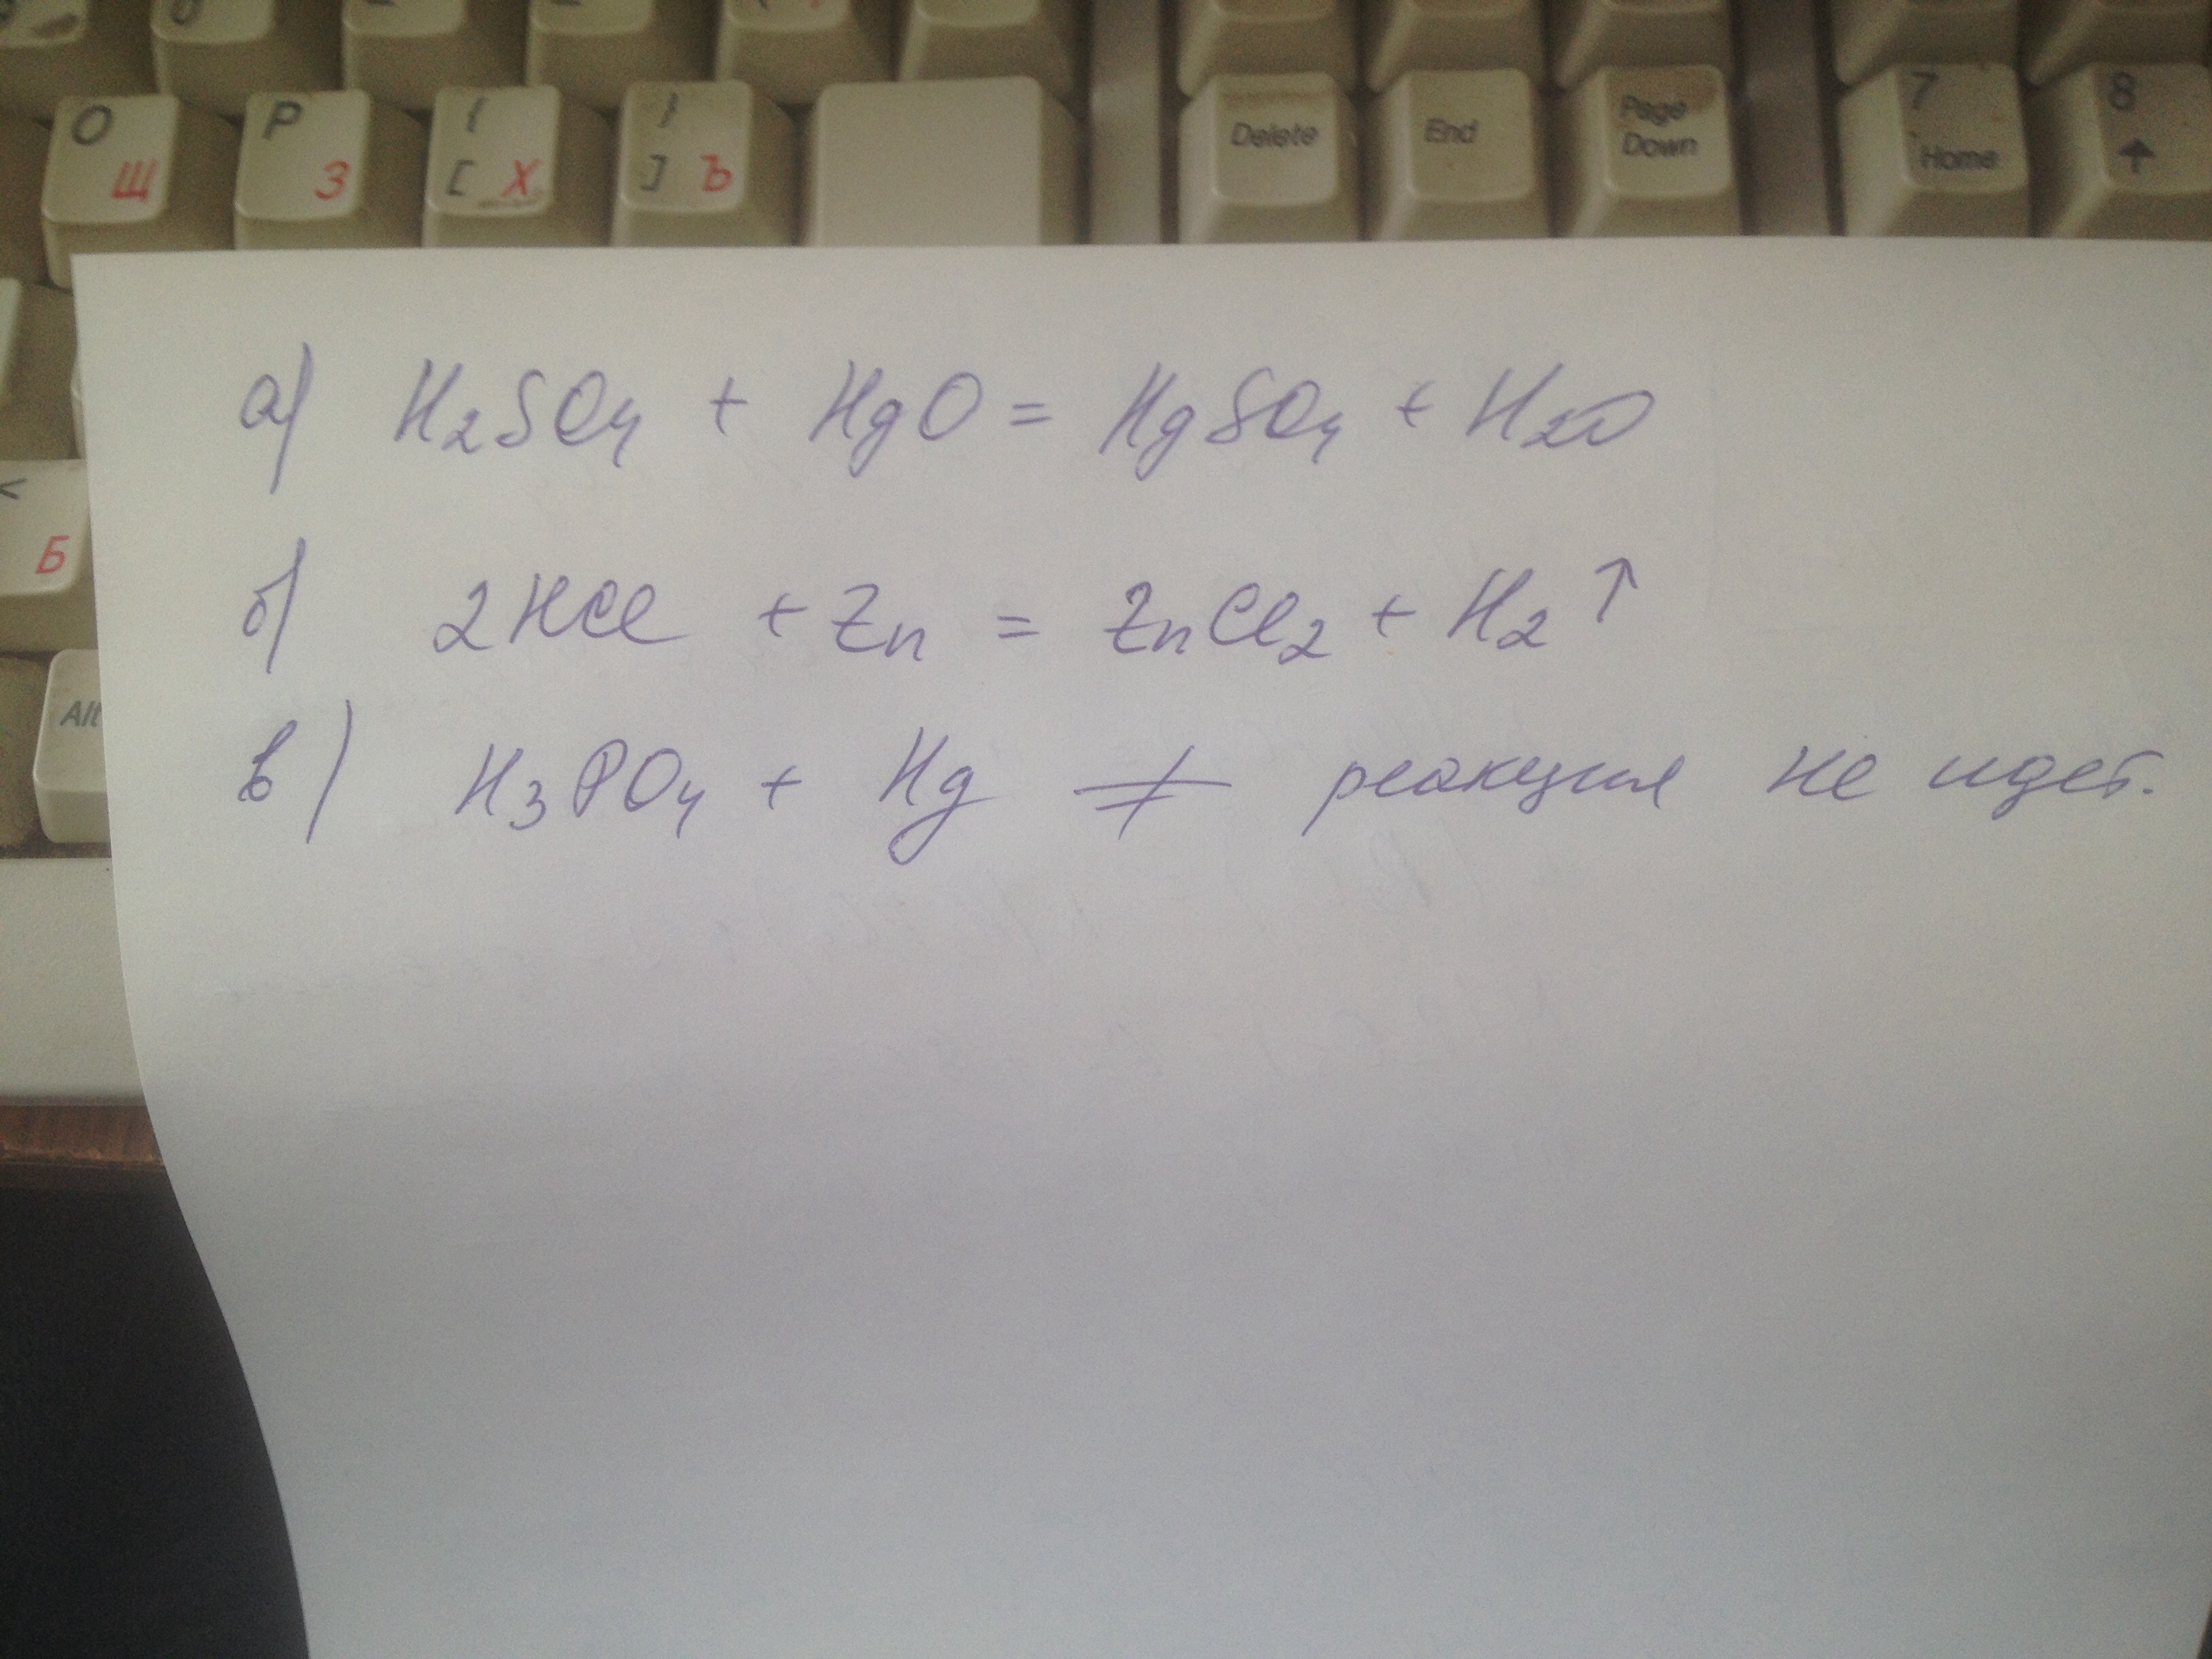 O Щ P З { [ Х } ] Ъ Delete End Page Down 7 Home 8
< Б
Alt
а) H₂SO₄ + HgO = HgSO₄ + H₂O
б) 2HCl + Zn = ZnCl₂ + H₂↑
в) H₃PO₄ + Hg ≠ реакция не идет.